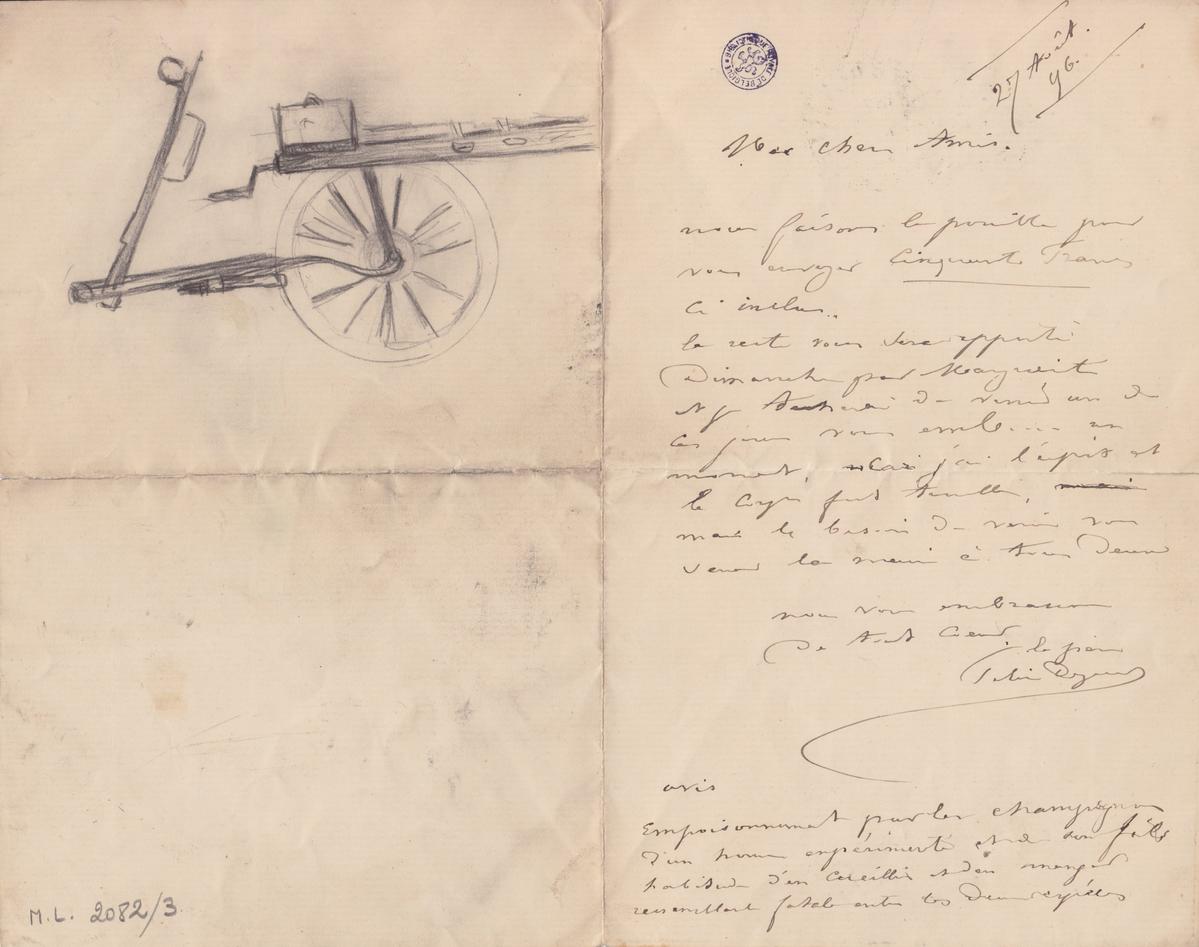 27 Août
96.
Mes chers Amis.
nous faisons le possible pour
vous envoyer Cinquante Francs
Ci inclus..
le reste vous sera apporté
Dimanche par Marguerite
et je de venir un de
ces jours vous un
moment, j'ai l'esprit et
le corps fort
mais le besoin de venir vous
la main à tous Deux
nous vous embrassons
De tout Coeur
le père
avis
Empoisonnement par les champignons
d'un homme expérimenté et de son fils
habitude d'en Cueillir et d'en manger
ressemblant fatale entre les Deux espèces
M.L. 2082/3